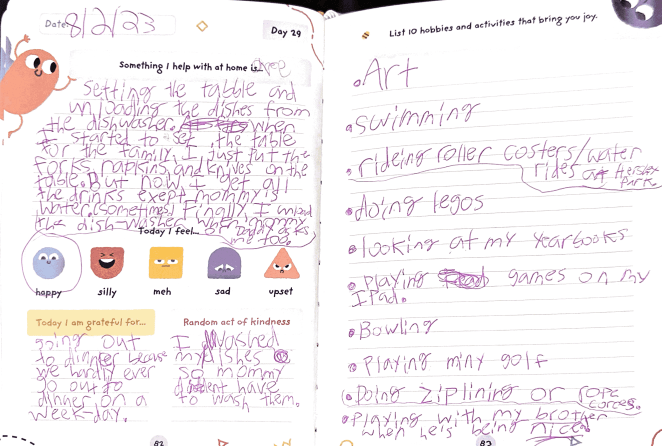 Date: 8/2/23
Day 29
Something I help with at home is...
Setting the tabble and
unloading the dishes from
the dishwasher. When
I started to set the table
for the family, I just put the
forks, napkins, and knives on the
table. But now I get all
the drinks exept mommy's
water (sometimes). Finally I unload
the dish-washer when mommy
or Daddy asks
me too.
Today I feel...
happy
silly
meh
sad
upset
Today I am grateful for...
going out
to dinner becase
we hardly ever
go out to
dinner on a
week-day.
Random act of kindness
I washed
my dishes
so mommy
dident have
to wash them.
82
List 10 hobbies and activities that bring you joy.
Art
swimming
rideing roller costers/water
rides at Hershey
Park
doing legos
looking at my yearbooks
playing games on my
IPad.
Bowling
Playing miny golf
Doing ziplining or rope
corces.
Playing with my brother
when he's being nice
83